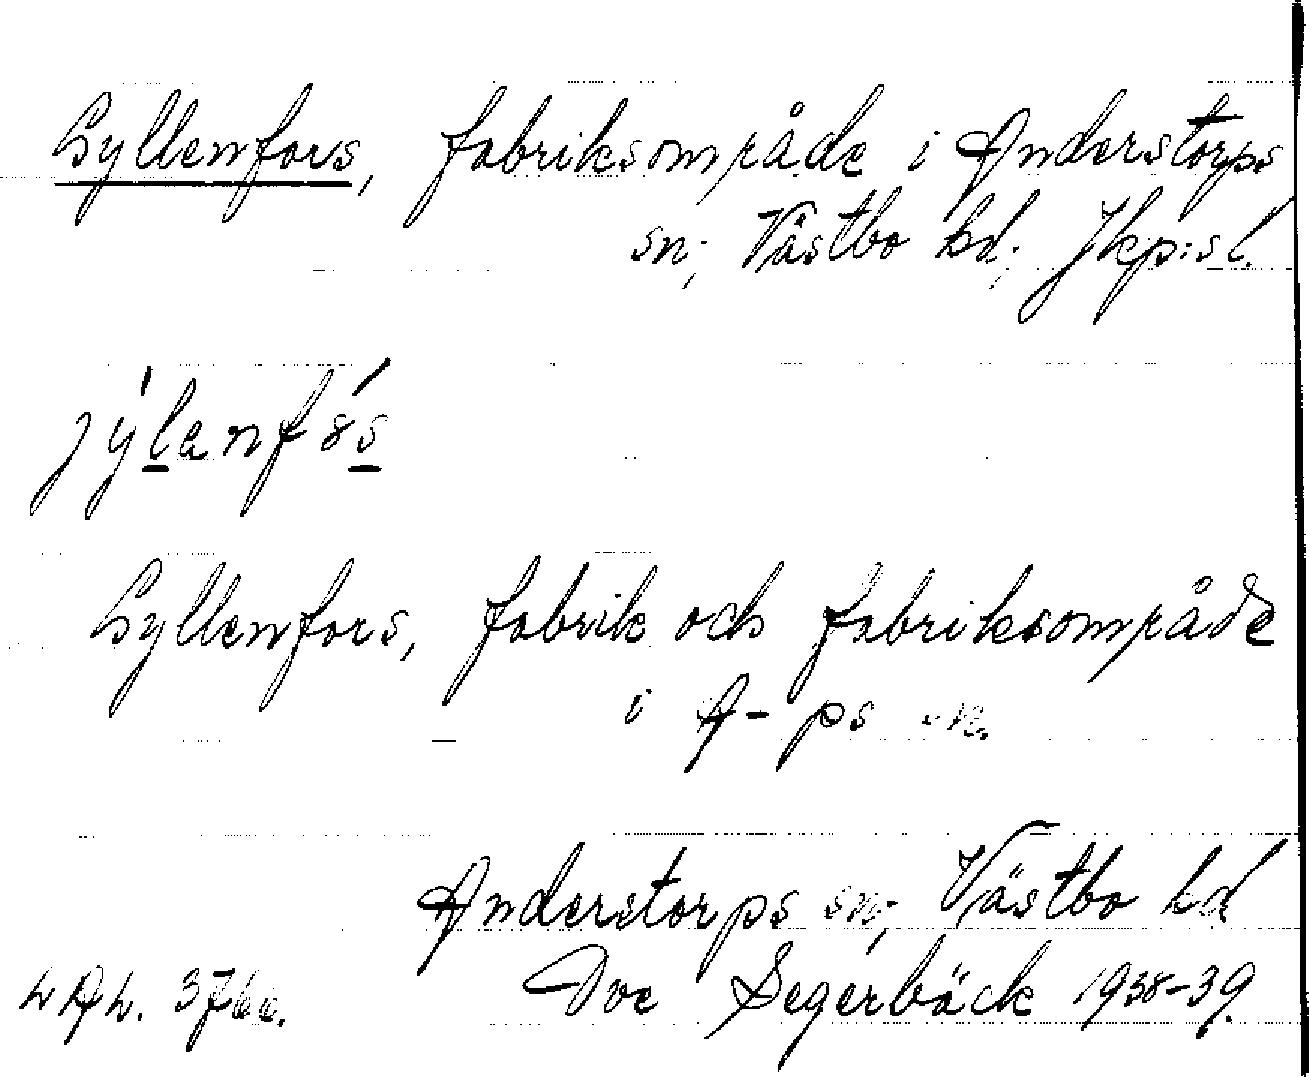 Gyllenfors, fabriksområde i Anderstorps
sn; Västbo hd; Jkp:sl.
Gyllenfors, fabrik och fabriksområde
i A-ps sn.
Anderstorps sn; Västbo hd
Ove Segerbäck 1938-39.